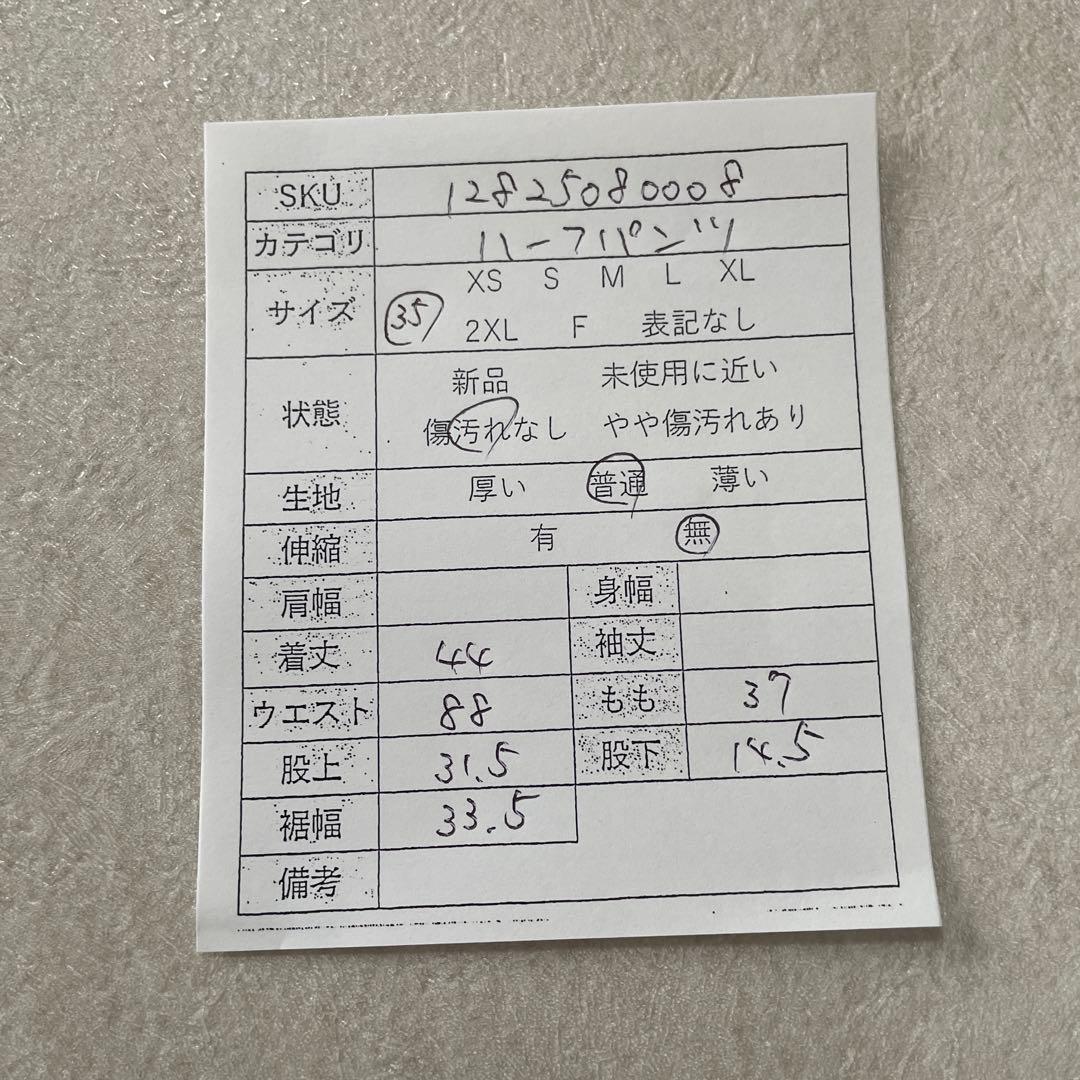 SKU 12825080008
カテゴリ ハーフパンツ
サイズ 35 XS S M L XL
2XL F 表記なし
状態 新品 未使用に近い
傷汚れなし やや傷汚れあり
生地 厚い 普通 薄い
伸縮 有 無
肩幅 身幅
着丈 44 袖丈
ウエスト 88 もも 37
股上 31.5 股下 14.5
裾幅 33.5
備考